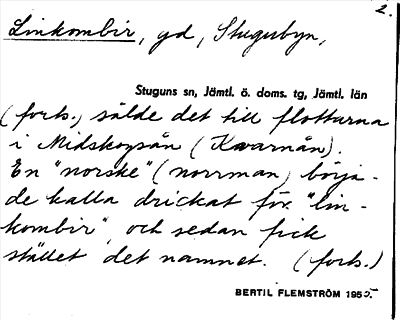 2.
Linkombir, gd, Stugubyn,
Stuguns sn, Jämtl. ö. doms. tg, Jämtl. län
(forts.) sålde det till flottarna
i Midskogsån (Kvarnån).
En "norske" (norrman) börja-
de kalla drickat för "lin-
kombir", och sedan fick
stället det namnet. (forts.)
BERTIL FLEMSTRÖM 1955